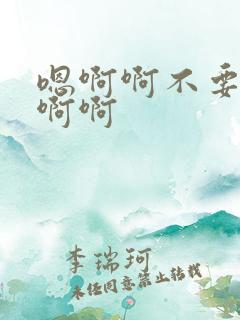 嗯啊啊不要
啊啊
李瑞珂
未经同意禁止转载